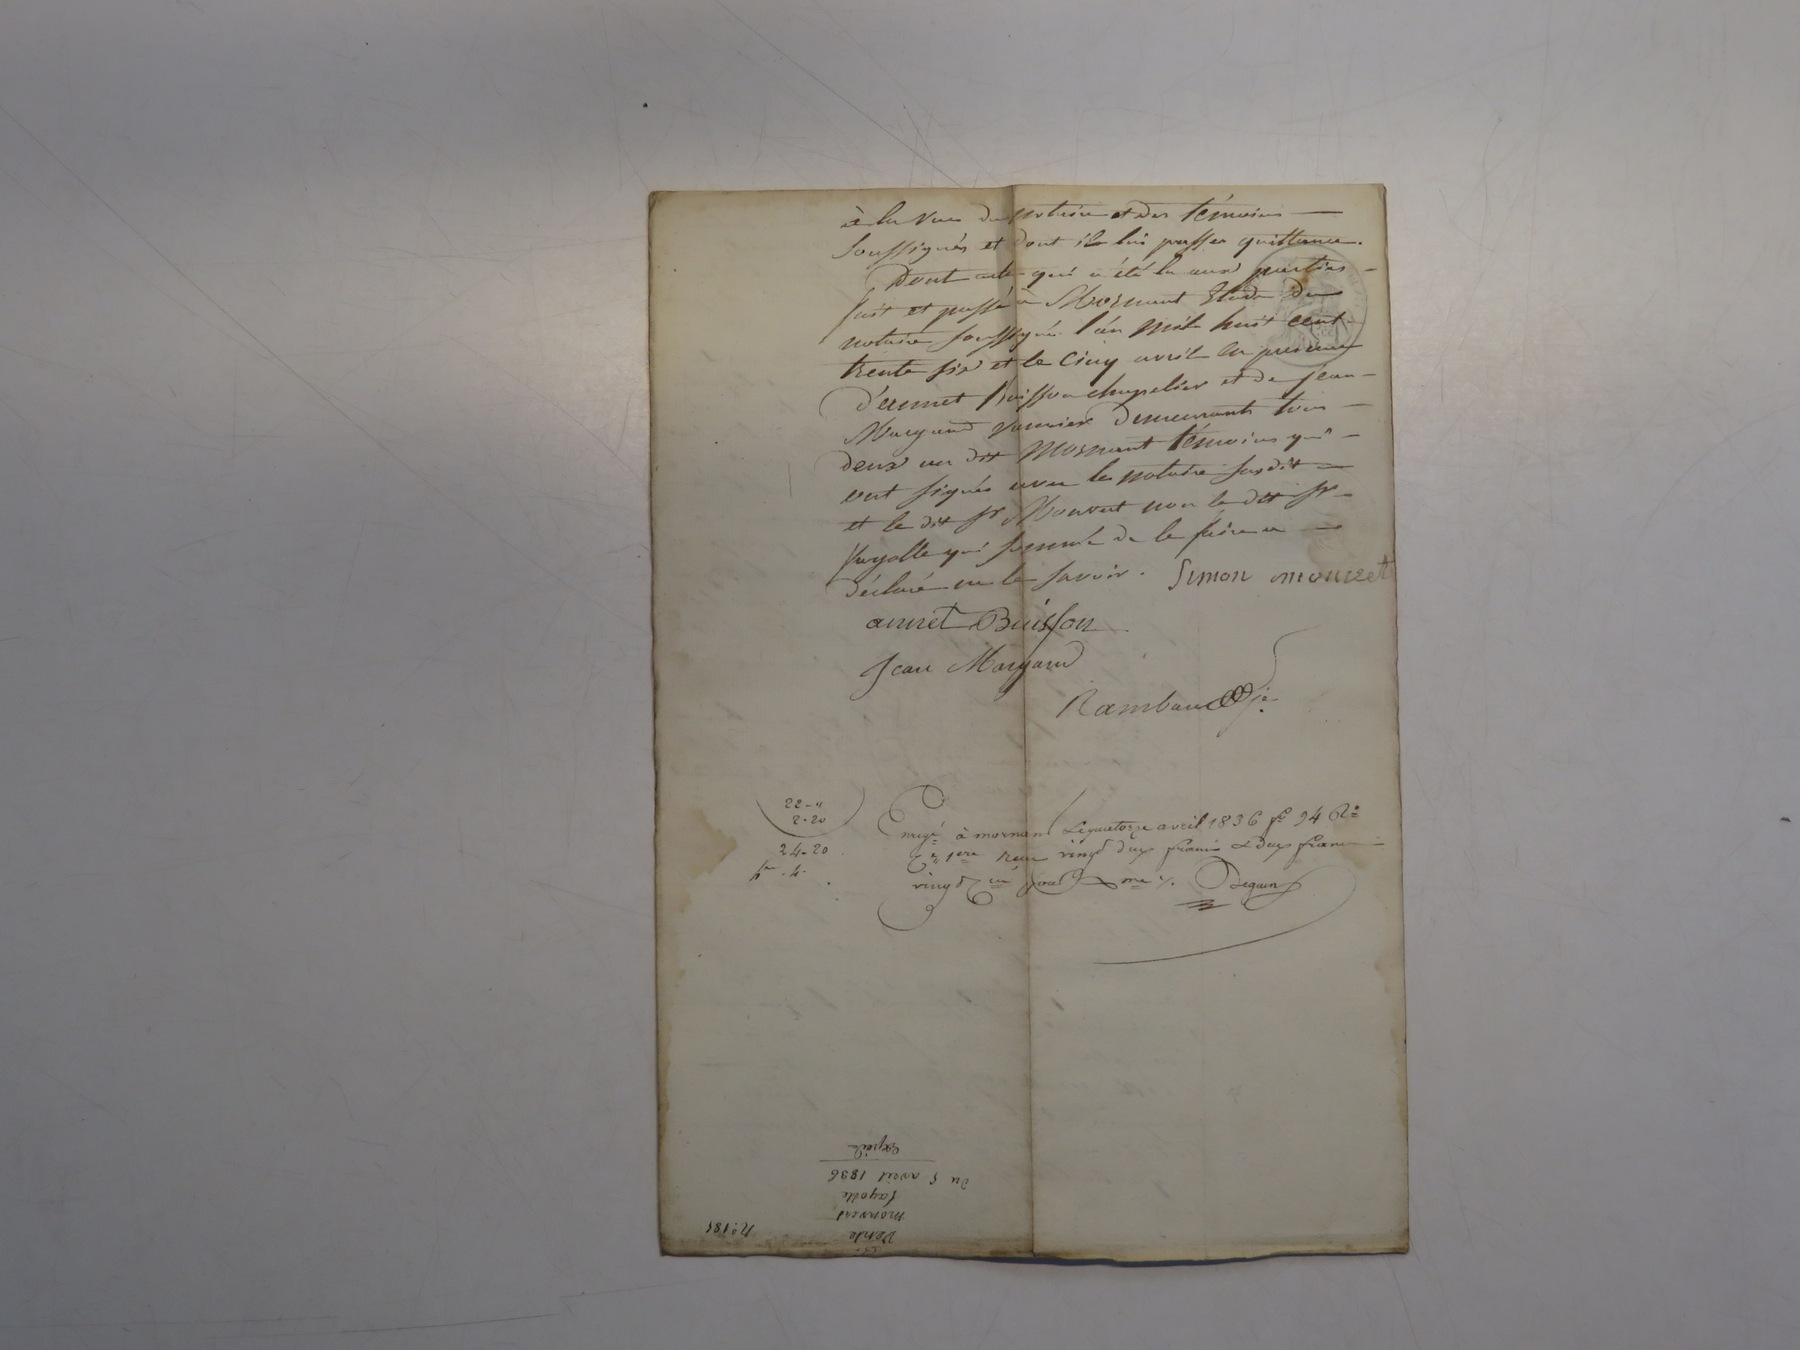 à la vue du notaire et des témoins
soussignés et dont il lui passe quittance.
Dont acte qui a été lu aux parties
fait et passé à Mornant Etude du
notaire soussigné l'an mil huit cent
trente six et le cinq avril en présence
d'annet Buisson chapelier et de jean
Margand demeurants tous
deux au dit Mornant témoins qui
ont signés avec le notaire susdit
et le dit sr Monvert non le dit sr
fayolle qui sommé de le faire a
déclaré ne le savoir. Simon monvert
annet Buisson
Jean Margand
Rambaud
22-"
2-20
24-20
Enregé à mornant Le quatorze avril 1836 fo 94 Ro
Ce 1ere reçu vingt deux francs & deux francs
vingt Deguin
Nº 185
Vente
monvert
fayolle
du 5 avril 1836
expiée